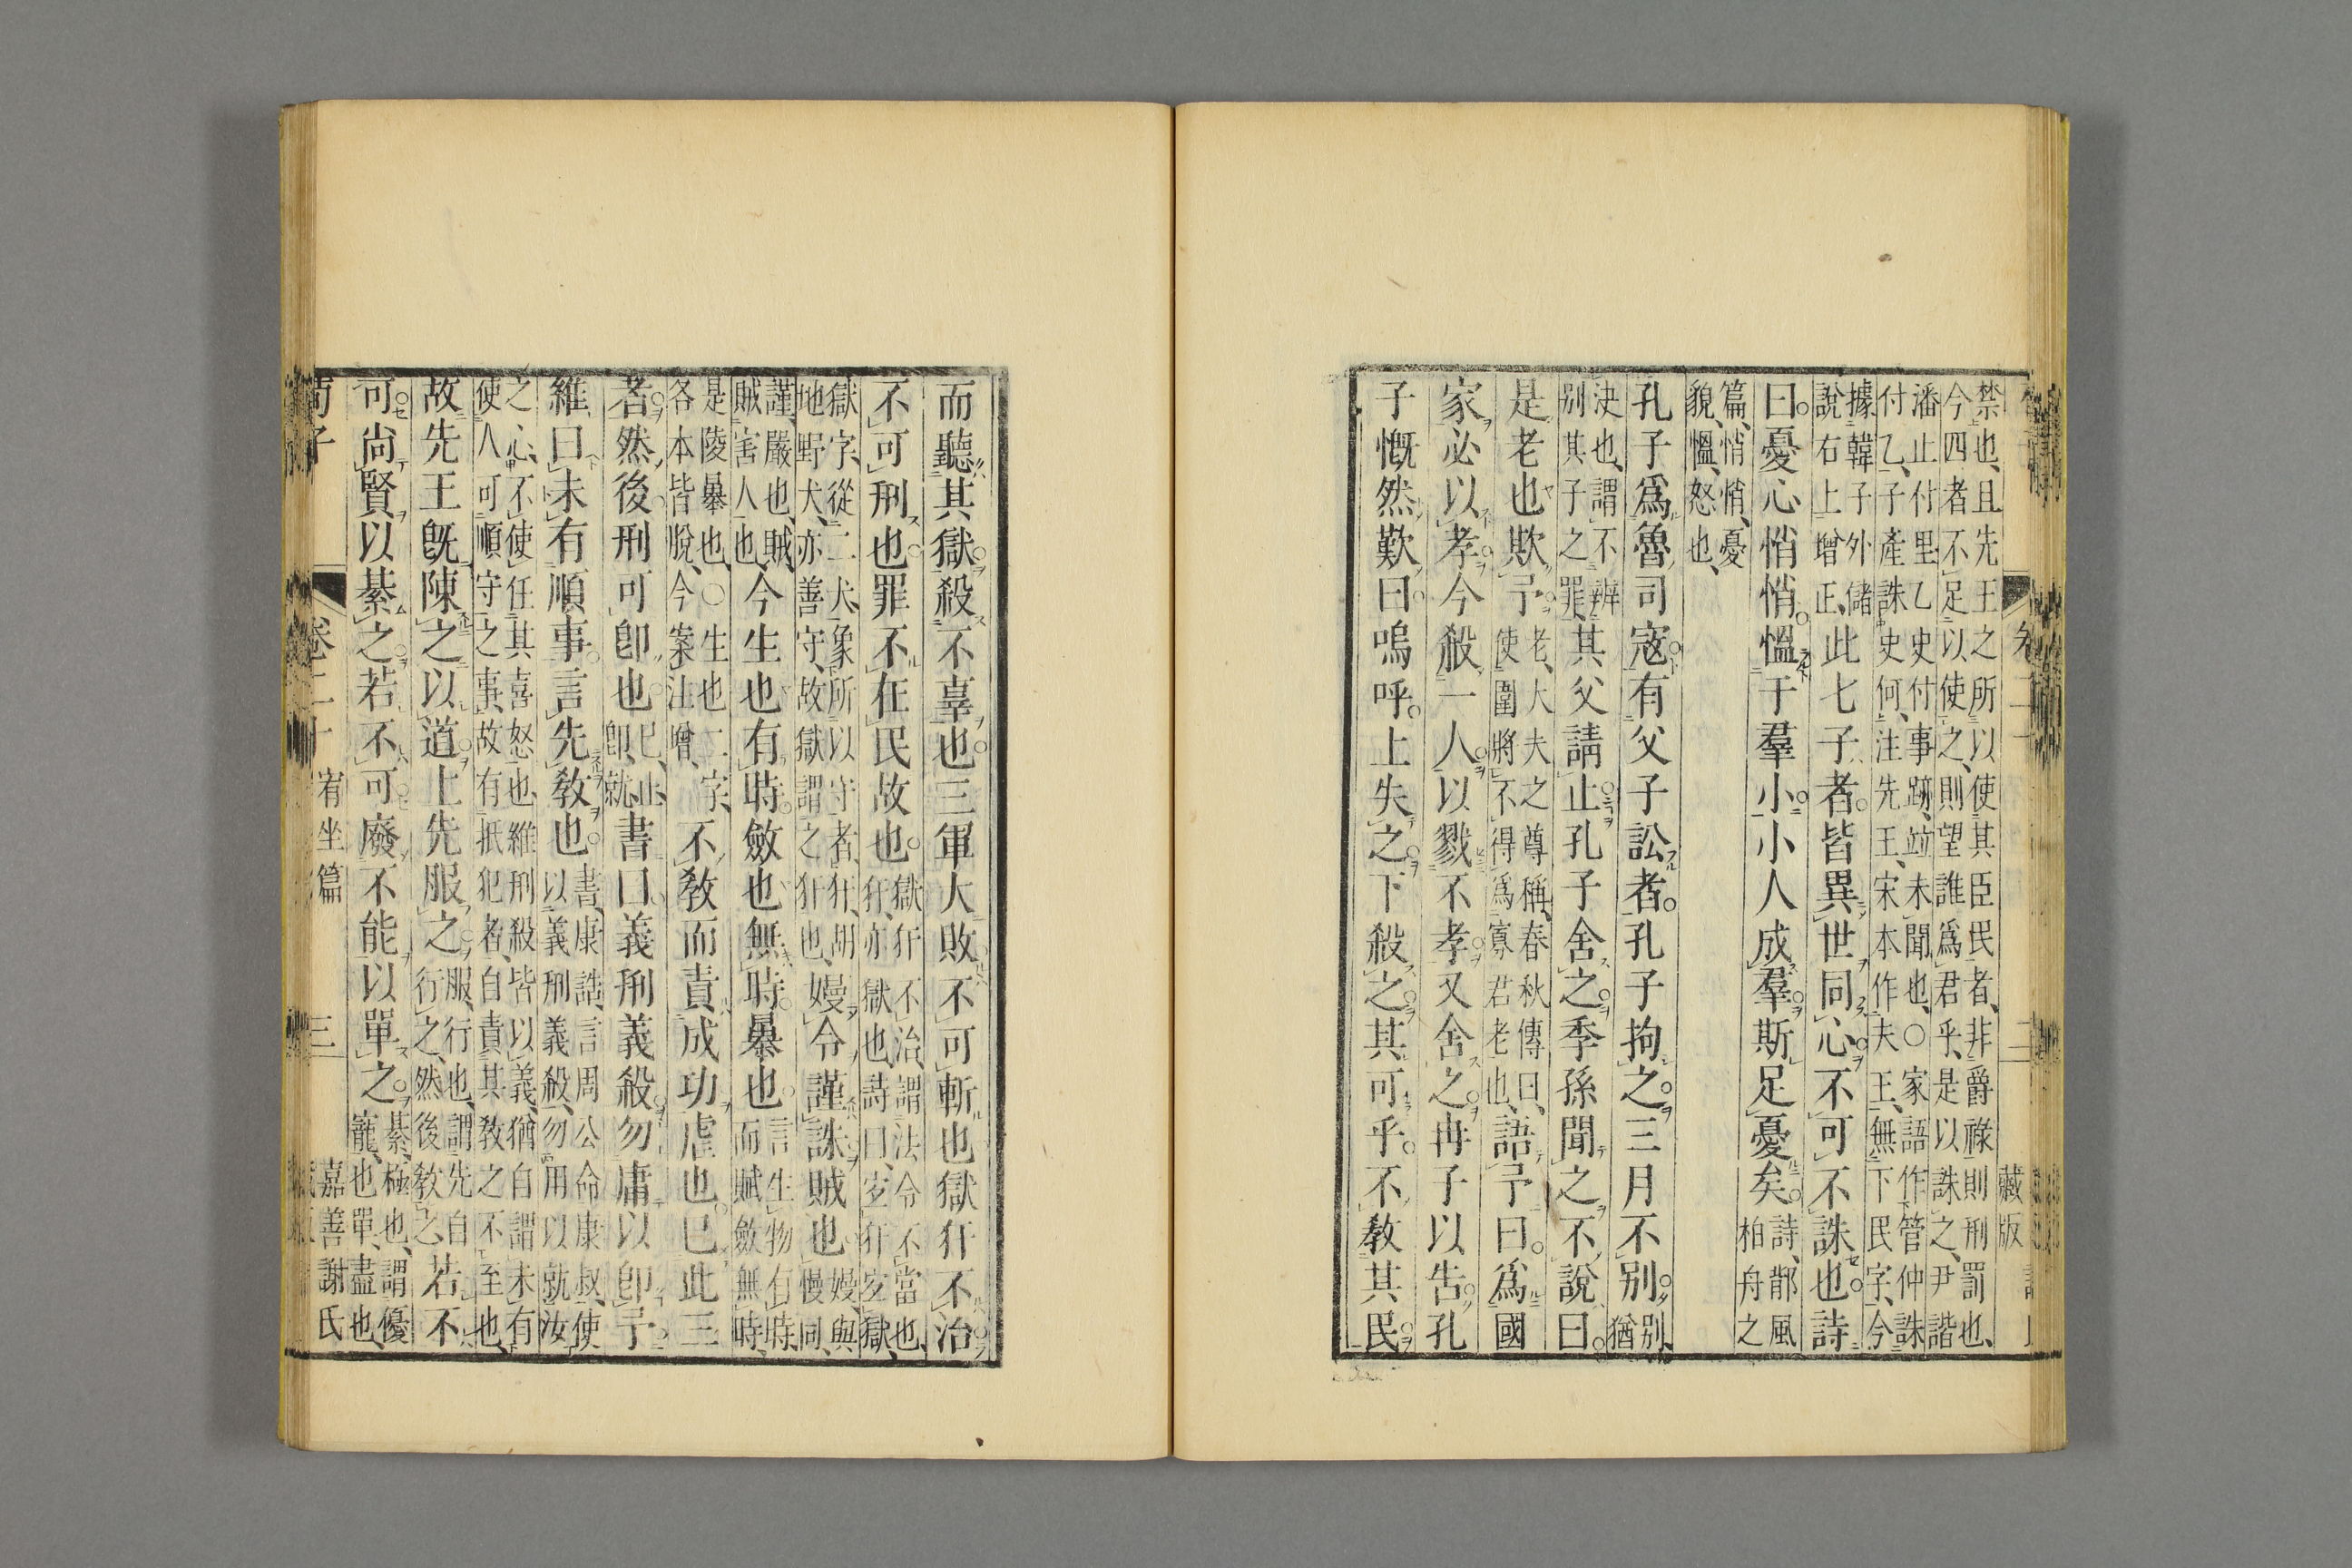 禁也、且先王之所以使其臣民者、非爵祿則刑罰也、
今四者不足以使之、則望誰爲君乎、是以誅之、尹諧
潘止付里乙史付事跡、竝未聞也、○家語作管仲誅
付乙、子產誅史何、注先王、宋本作夫王、無下民字、今
據韓子外儲
說右上增正、
此七子者皆異世同心不可不誅也詩
曰憂心悄悄慍于羣小小人成羣斯足憂矣
詩、鄁風
柏舟之
篇、悄悄、憂
貌、慍、怒也、
孔子爲魯司寇有父子訟者孔子拘之三月不別
別、
猶
決也、謂不辨
別其子之罪、
其父請止孔子舍之季孫聞之不說曰
是老也欺予
老、大夫之尊稱、春秋傳曰、
使圍將不得爲寡君老也、
語予曰爲國
家必以孝今殺一人以戮不孝又舍之冉子以告孔
子慨然歎曰嗚呼上失之下殺之其可乎不教其民
藏版
而聽其獄殺不辜也三軍大敗不可斬也獄犴不治
不可刑也罪不在民故也
獄犴不治、謂法令不當也、
犴、亦獄也、詩曰、宜犴宜獄、
獄字、從二犬、象所以守者、犴、胡
地野犬、亦善守、故獄謂之犴也、
嫚令謹誅賊也
嫚、與
慢同、
謹、嚴也、賊、
賊害人也、
今生也有時斂也無時暴也
言生物有時、
而賦斂無時、
是陵暴也、○生也二字、
各本皆脫、今案注增、
不教而責成功虐也已此三
者然後刑可卽也
已、止、
卽、就、
書曰義刑義殺勿庸以卽予
維曰未有順事言先教也
書、康誥、言周公命康叔、使
以義刑義殺、勿用以就汝
之心、不使任其喜怒也、維刑殺皆以義、猶自謂未有
使人可順守之事、故有抵犯者、自責其教之不至也、
故先王旣陳之以道上先服之
服、行也、謂先自
行之、然後教之、
若不
可尚賢以綦之若不可廢不能以單之
綦、極也、謂優
寵也、單、盡也、
荀子
卷二十
宥坐篇
三
嘉善謝氏